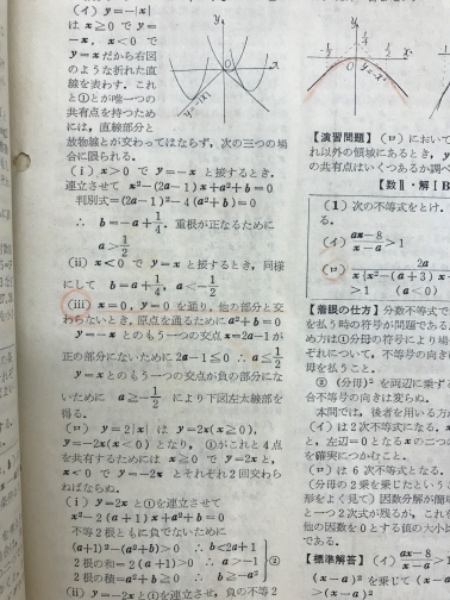 (イ) y=-|x|
は x≧0 で y=
-x, x<0 で
y=x だから右図
のような折れた直
線を表わす. これ
と①とが唯一つの
共有点を持つため
には, 直線部分と
放物線とが変わってはならず, 次の三つの場
合に限られる.
(i) x>0 で y=-x と接するとき.
連立させて x²-(2a-1)x+a²+b=0
判別式=(2a-1)²-4(a²+b)=0
∴ b=-a+1/4, 重根が正なるために
a>1/2
(ii) x<0 で y=x と接するとき, 同様
にして b=a+1/4, a<-1/2
(iii) x=0, y=0 を通り, 他の部分と交
わらないとき, 原点を通るために a²+b=0
y=-x とのもう一つの交点 x=2a-1 が
正の部分にないために 2a-1≦0 ∴ a≦1/2
y=x とのもう一つの交点が負の部分にな
いために a≧-1/2 により下図左太線部を
得る.
(ロ) y=2|x| は y=2x(x≧0),
y=-2x(x<0) となり, ①がこれと4点
を共有するためには x≧0 で y=2x と,
x<0 で y=-2x とそれぞれ2回交わら
ねばならぬ.
(i) y=2x と①を連立させて
x²-2(a+1)x+a²+b=0
不等2根ともに負でないために
(a+1)²-(a²+b)>0 ∴ b<2a+1
2根の和=2(a+1)>0 ∴ a>-1
2根の積=a²+b≧0 ∴ b≧-a²
②
(ii) y=-2x と①を連立させ, 負の不等2
y
O
x
y=-|x|
y
1/4
-1/2
1/2
O
x
y=-x²
【演習問題】(ロ) において
れ以外の領域にあるとき, y
の共有点はいくつあるか調べ
【数Ⅱ・解ⅠB
(1) 次の不等式をとけ.
る.
(イ) ax-8/x-a>1
(ロ) 2a/x{x²-(a+3)x
>1 (a<0)
【着眼の仕方】分数不等式で
を払う時の符号が問題である.
め方は①分母の符号により場
ぞれについて, 不等号の向き
母を払うこと.
② (分母)² を両辺に乗ず
合不等号の向きは変らぬ.
本問では, 後者を用いる方
(イ) は2次不等式になる. x
と, 左辺=0となる x の二つの
を確実につかむこと.
(ロ) は6次不等式となる.
(分母の2乗を乗じたという
形をよく見て) 因数分解が簡単
と一つ2次式が残るが, これを
他の因数を0とする値の大小は
である.
【標準解答】(イ) ax-8/x-a>1
(x-a)² を乗じて (x-a)